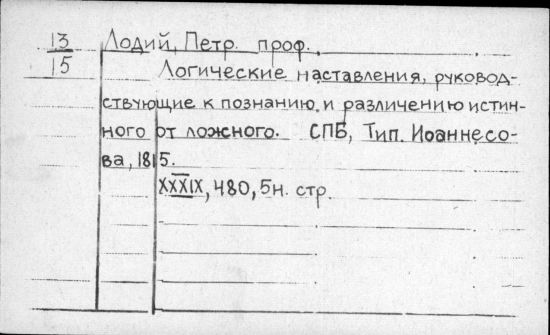 13 Лодий, Петр. проф.
15 Логические наставления, руковод-
ствующие к познанию и различению истин-
ного от ложного. СПБ, Тип. Иоаннесо-
ва, 1815.
XXXIX, 480, 5н. стр.